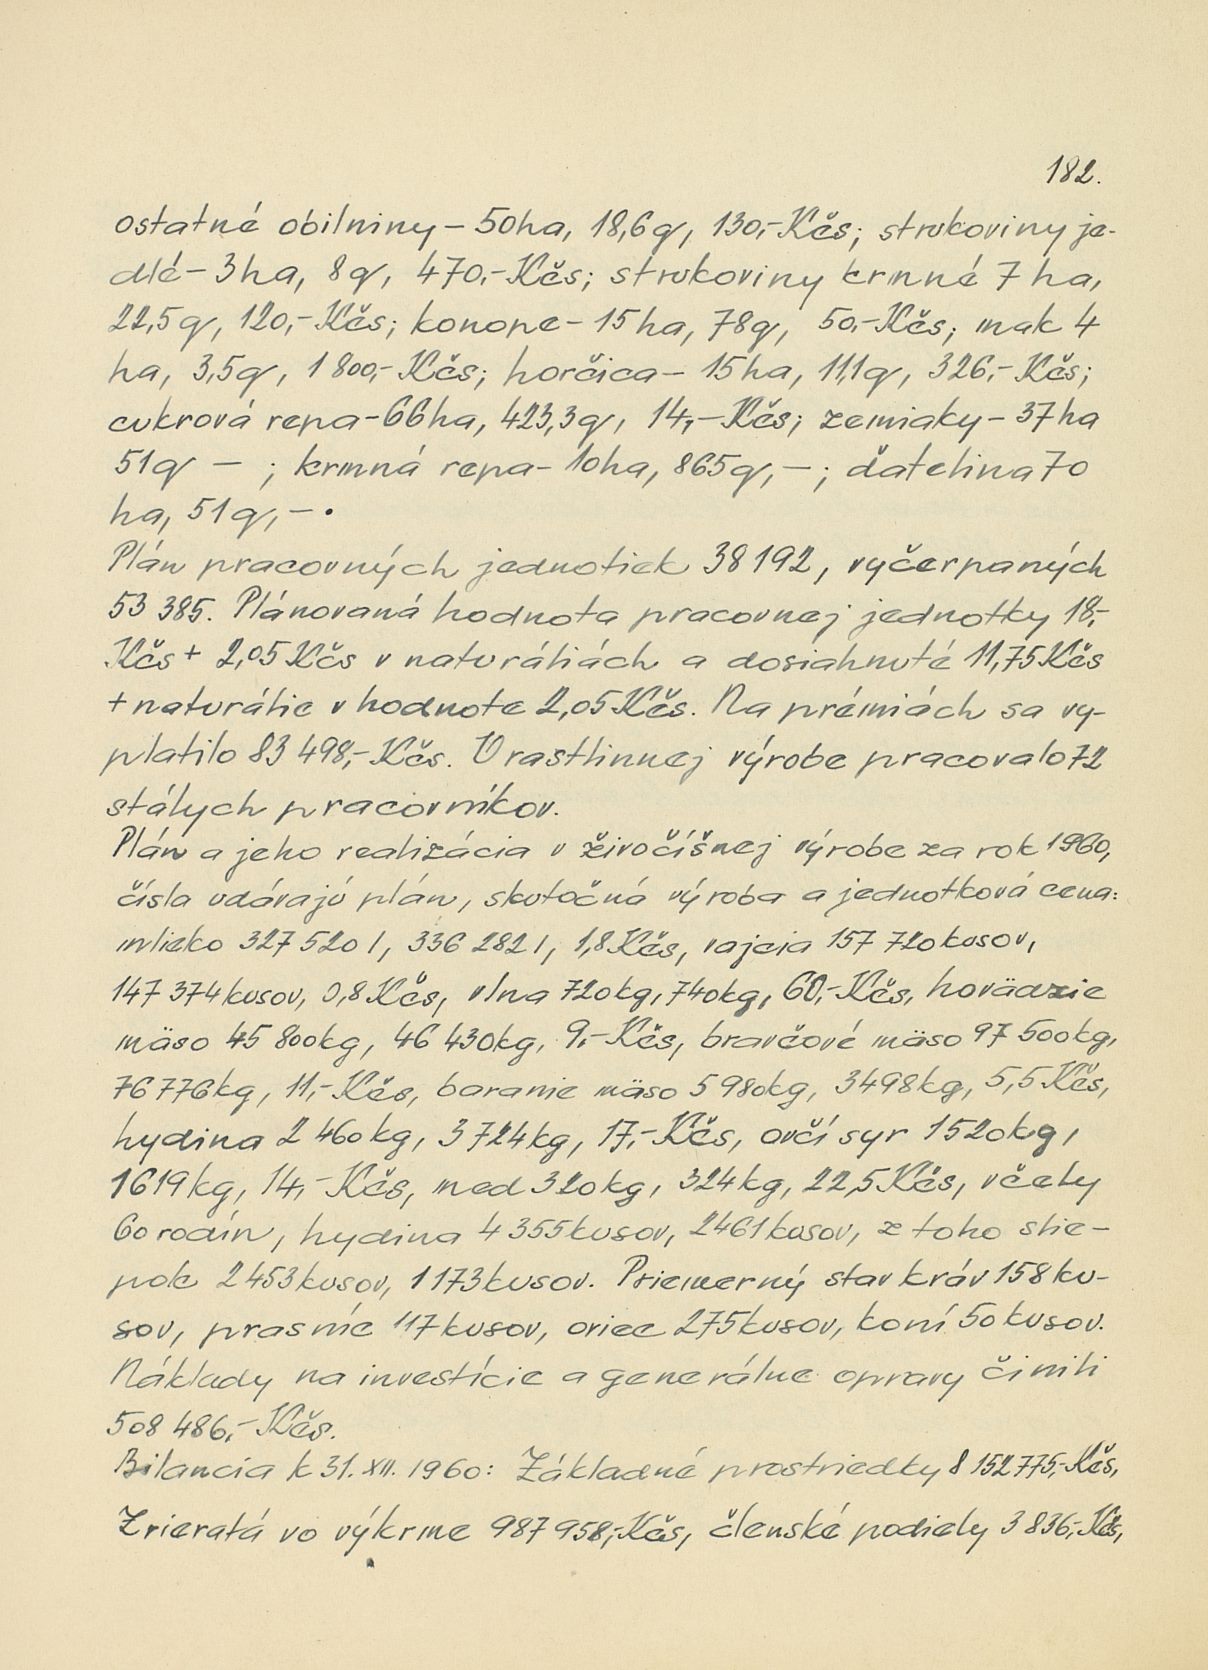 182.
ostatné obilniny – 50 ha, 18,6 q, 130,- Kčs; strukoviny je-
dlé – 3 ha, 8 q, 470,- Kčs; strukoviny krmné 7 ha,
22,5 q, 120,- Kčs; konope – 15 ha, 78 q, 50,- Kčs; mak 4
ha, 3,5 q, 1 800,- Kčs; horčica – 15 ha, 11,1 q, 326,- Kčs;
cukrová repa – 66 ha, 423,3 q, 14,- Kčs; zemiaky – 37 ha
51 q – ; krmná repa – 10 ha, 865 q, – ; ďatelina 70
ha, 51 q, – .
Plán pracovných jednotiek 38 192, vyčerpaných
53 385. Plánovaná hodnota pracovnej jednotky 18,-
Kčs + 2,05 Kčs v naturáliách a dosiahnuté 11,75 Kčs
+ naturálie v hodnote 2,05 Kčs. Na prémiách sa vy-
platilo 83 498,- Kčs. V rastlinnej výrobe pracovalo 72
stálych pracovníkov.
Plán a jeho realizácia v živočíšnej výrobe za rok 1960,
čísla udávajú plán, skutočná výroba a jednotková cena:
mlieko 327 520 l, 336 282 l, 1,8 Kčs, vajcia 157 720 kusov,
147 374 kusov, 0,8 Kčs, vlna 720 kg, 740 kg, 60,- Kčs, hovädzie
mäso 45 800 kg, 46 430 kg, 9,- Kčs, bravčové mäso 97 500 kg,
76 776 kg, 11,- Kčs, baranie mäso 5 980 kg, 3498 kg, 5,5 Kčs,
hydina 2 460 kg, 3 724 kg, 17,- Kčs, ovčí syr 1520 kg,
1619 kg, 14,- Kčs, med 320 kg, 324 kg, 22,5 Kčs, včely
60 rodín, hydina 4 355 kusov, 2461 kusov, z toho slie-
pok 2 453 kusov, 1 173 kusov. Priemerný stav kráv 158 ku-
sov, prasníc 117 kusov, oviec 275 kusov, koní 50 kusov.
Náklady na investície a generálne opravy činili
508 486,- Kčs.
Bilancia k 31. XII. 1960: Základné prostriedky 8 152 775,- Kčs,
Zvieratá vo výkrme 987 958,- Kčs, členské podiely 3 836,- Kčs,